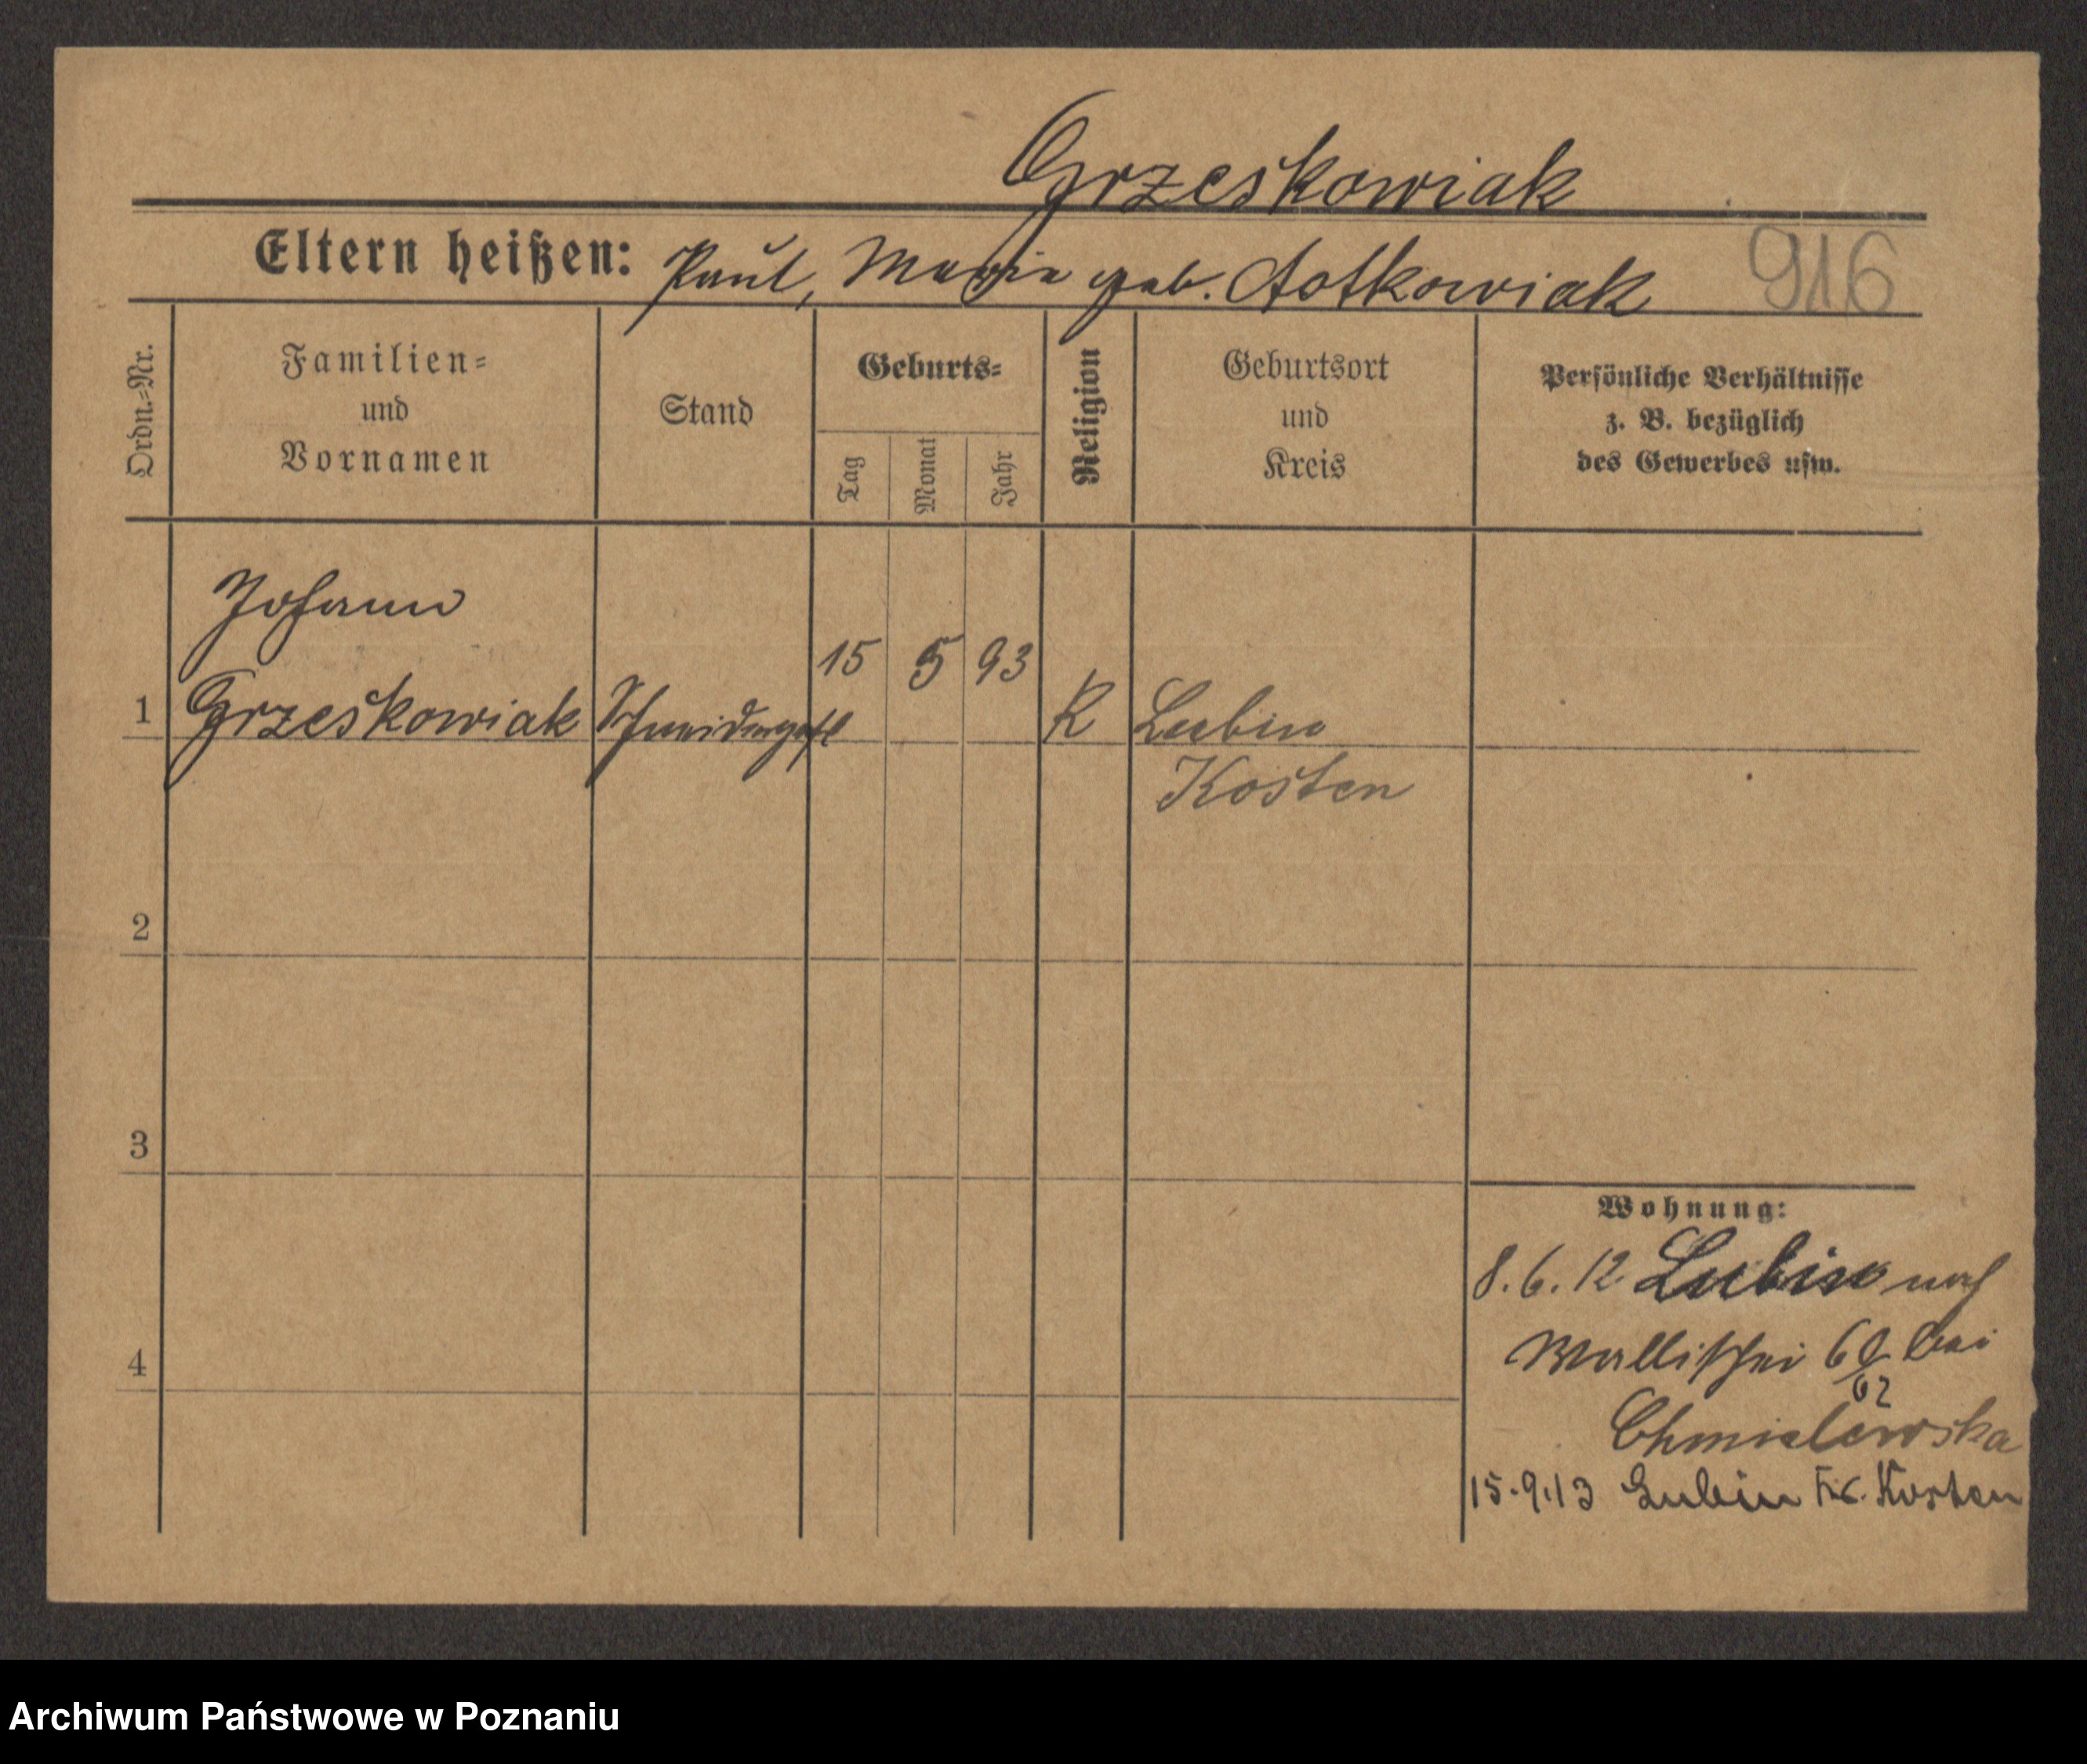 Grześkowiak
Eltern heißen: Paul, Maria geb. Aotkowiak
916
Ordn.-Nr.
Familien-
und
Vornamen
Stand
Geburts-
Tag
Monat
Jahr
Religion
Geburtsort
und
Kreis
Persönliche Verhältnisse
z. B. bezüglich
des Gewerbes usw.
Johann
1 Grześkowiak Schneidergesl 15 5 93 K Lubin
Kosten
2
3
4
Wohnung:
8.6.12 Lubin nach
Wallischei bei
62
Chmielewska
15.9.13 Lubin Kr. Kosten
Archiwum Państwowe w Poznaniu